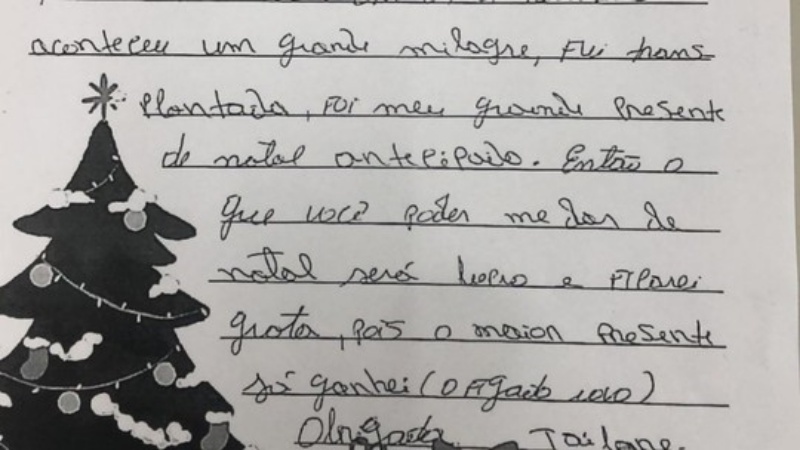 aconteceu um grande milagre, Fui trans-
Plantada, FOi meu grande Presente
de natal antecipado. Então o
que você poder me dar de
natal será lucro e Ficarei
grata, pois o maior Presente
já ganhei (O Fígado novo)
Obrigada Tailane.